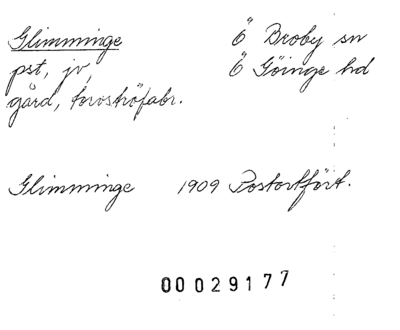 Glimminge Ö Broby sn
pst, jv, Ö Göinge hd
gård, torvströfabr.
Glimminge 1909 Postortfört.
00029177